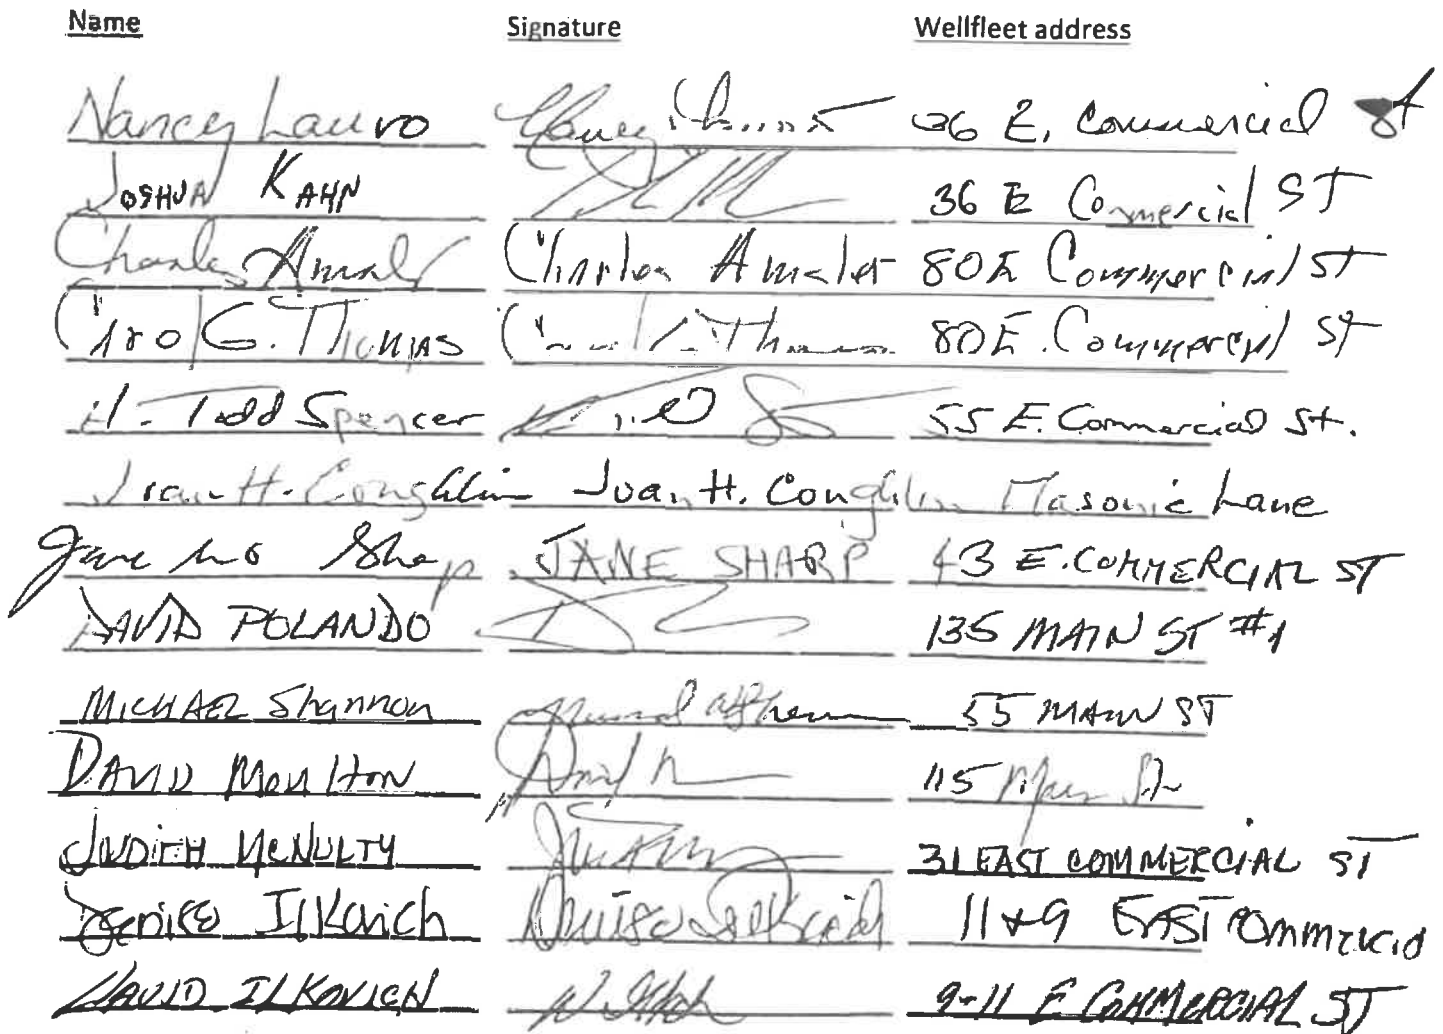 Name Signature Wellfleet address
Nancy Lauro Nancy 36 E. Commercial St
Joshua Kahn 36 E Commercial ST
Charles Amsler Charles Amsler 80 E Commercial St
Carol G. Thomas Carol G. Thomas 80 E. Commercial St
H. Todd Spencer 55 E. Commercial St.
Joan H. Coughlin Joan H. Coughlin Masonic Lane
Jane Sharp JANE SHARP 43 E. COMMERCIAL ST
DAVID POLANDO 135 MAIN ST #1
MICHAEL Shannon 55 MAIN ST
DAVID Moulton David 115 Main St
JUDITH McNULTY 31 EAST COMMERCIAL ST
Denise Ilkovich Denise Ilkovich 11 & 9 EAST Commercial
DAVID ILKOVICH 9-11 E COMMERCIAL ST